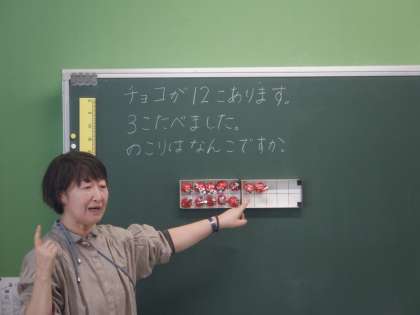 チョコが12こあります。
3こたべました。
のこりはなんこですか。